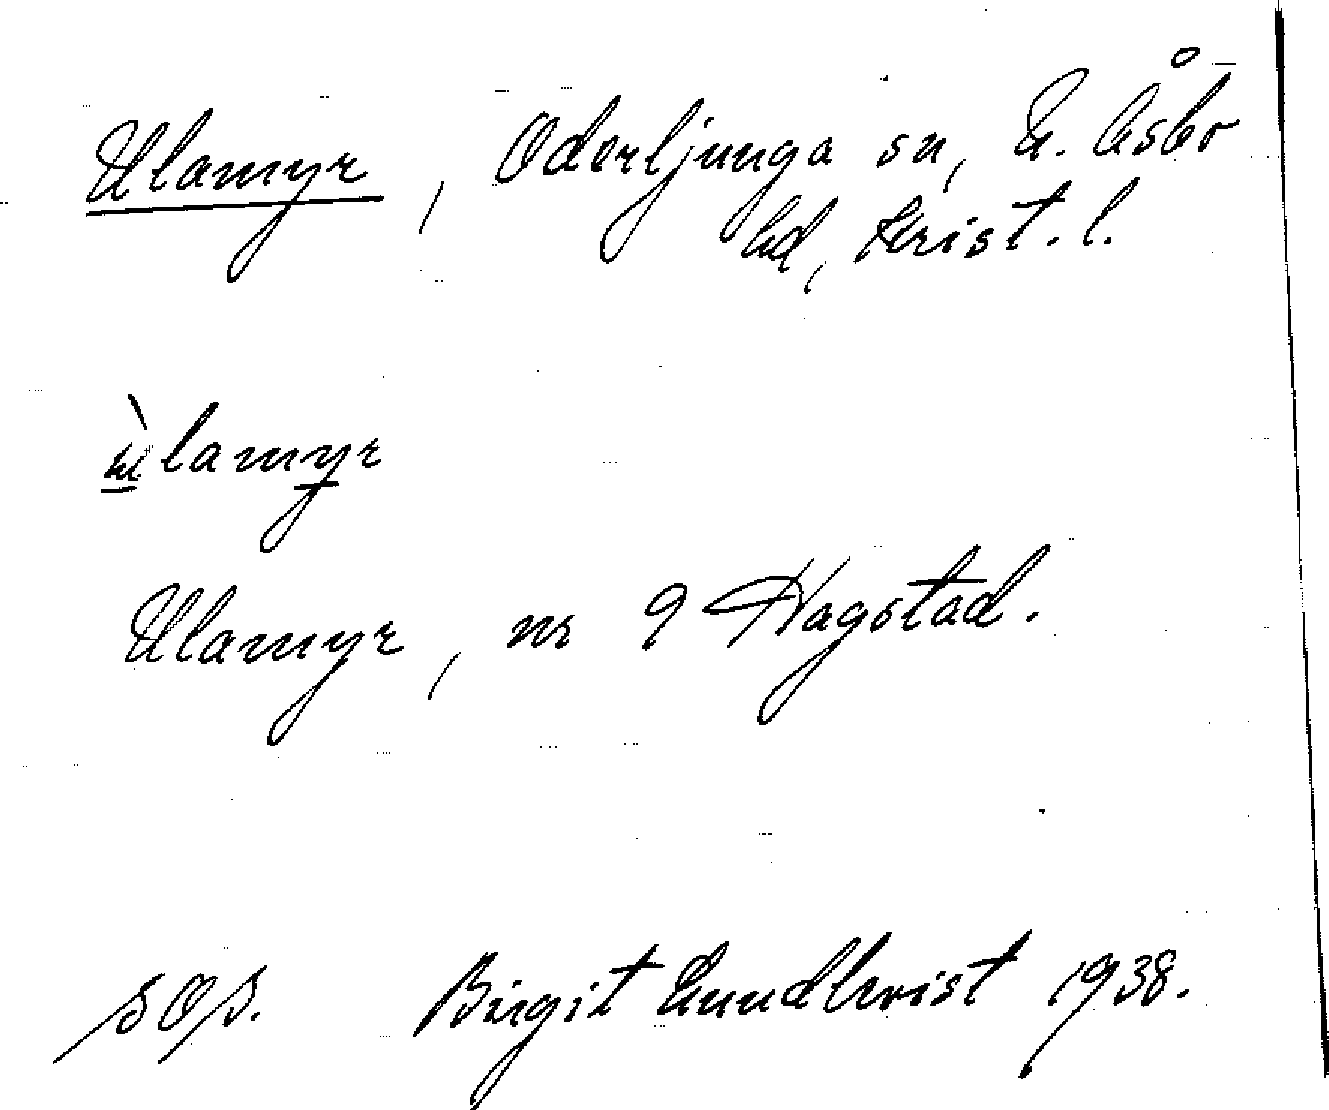 Ulamyr, Oderljunga sn, N. Åsbo
hd, Krist. l.
ùlamyr
Ulamyr, nr 9 Hagstad.
Birgit Lundkvist 1938.